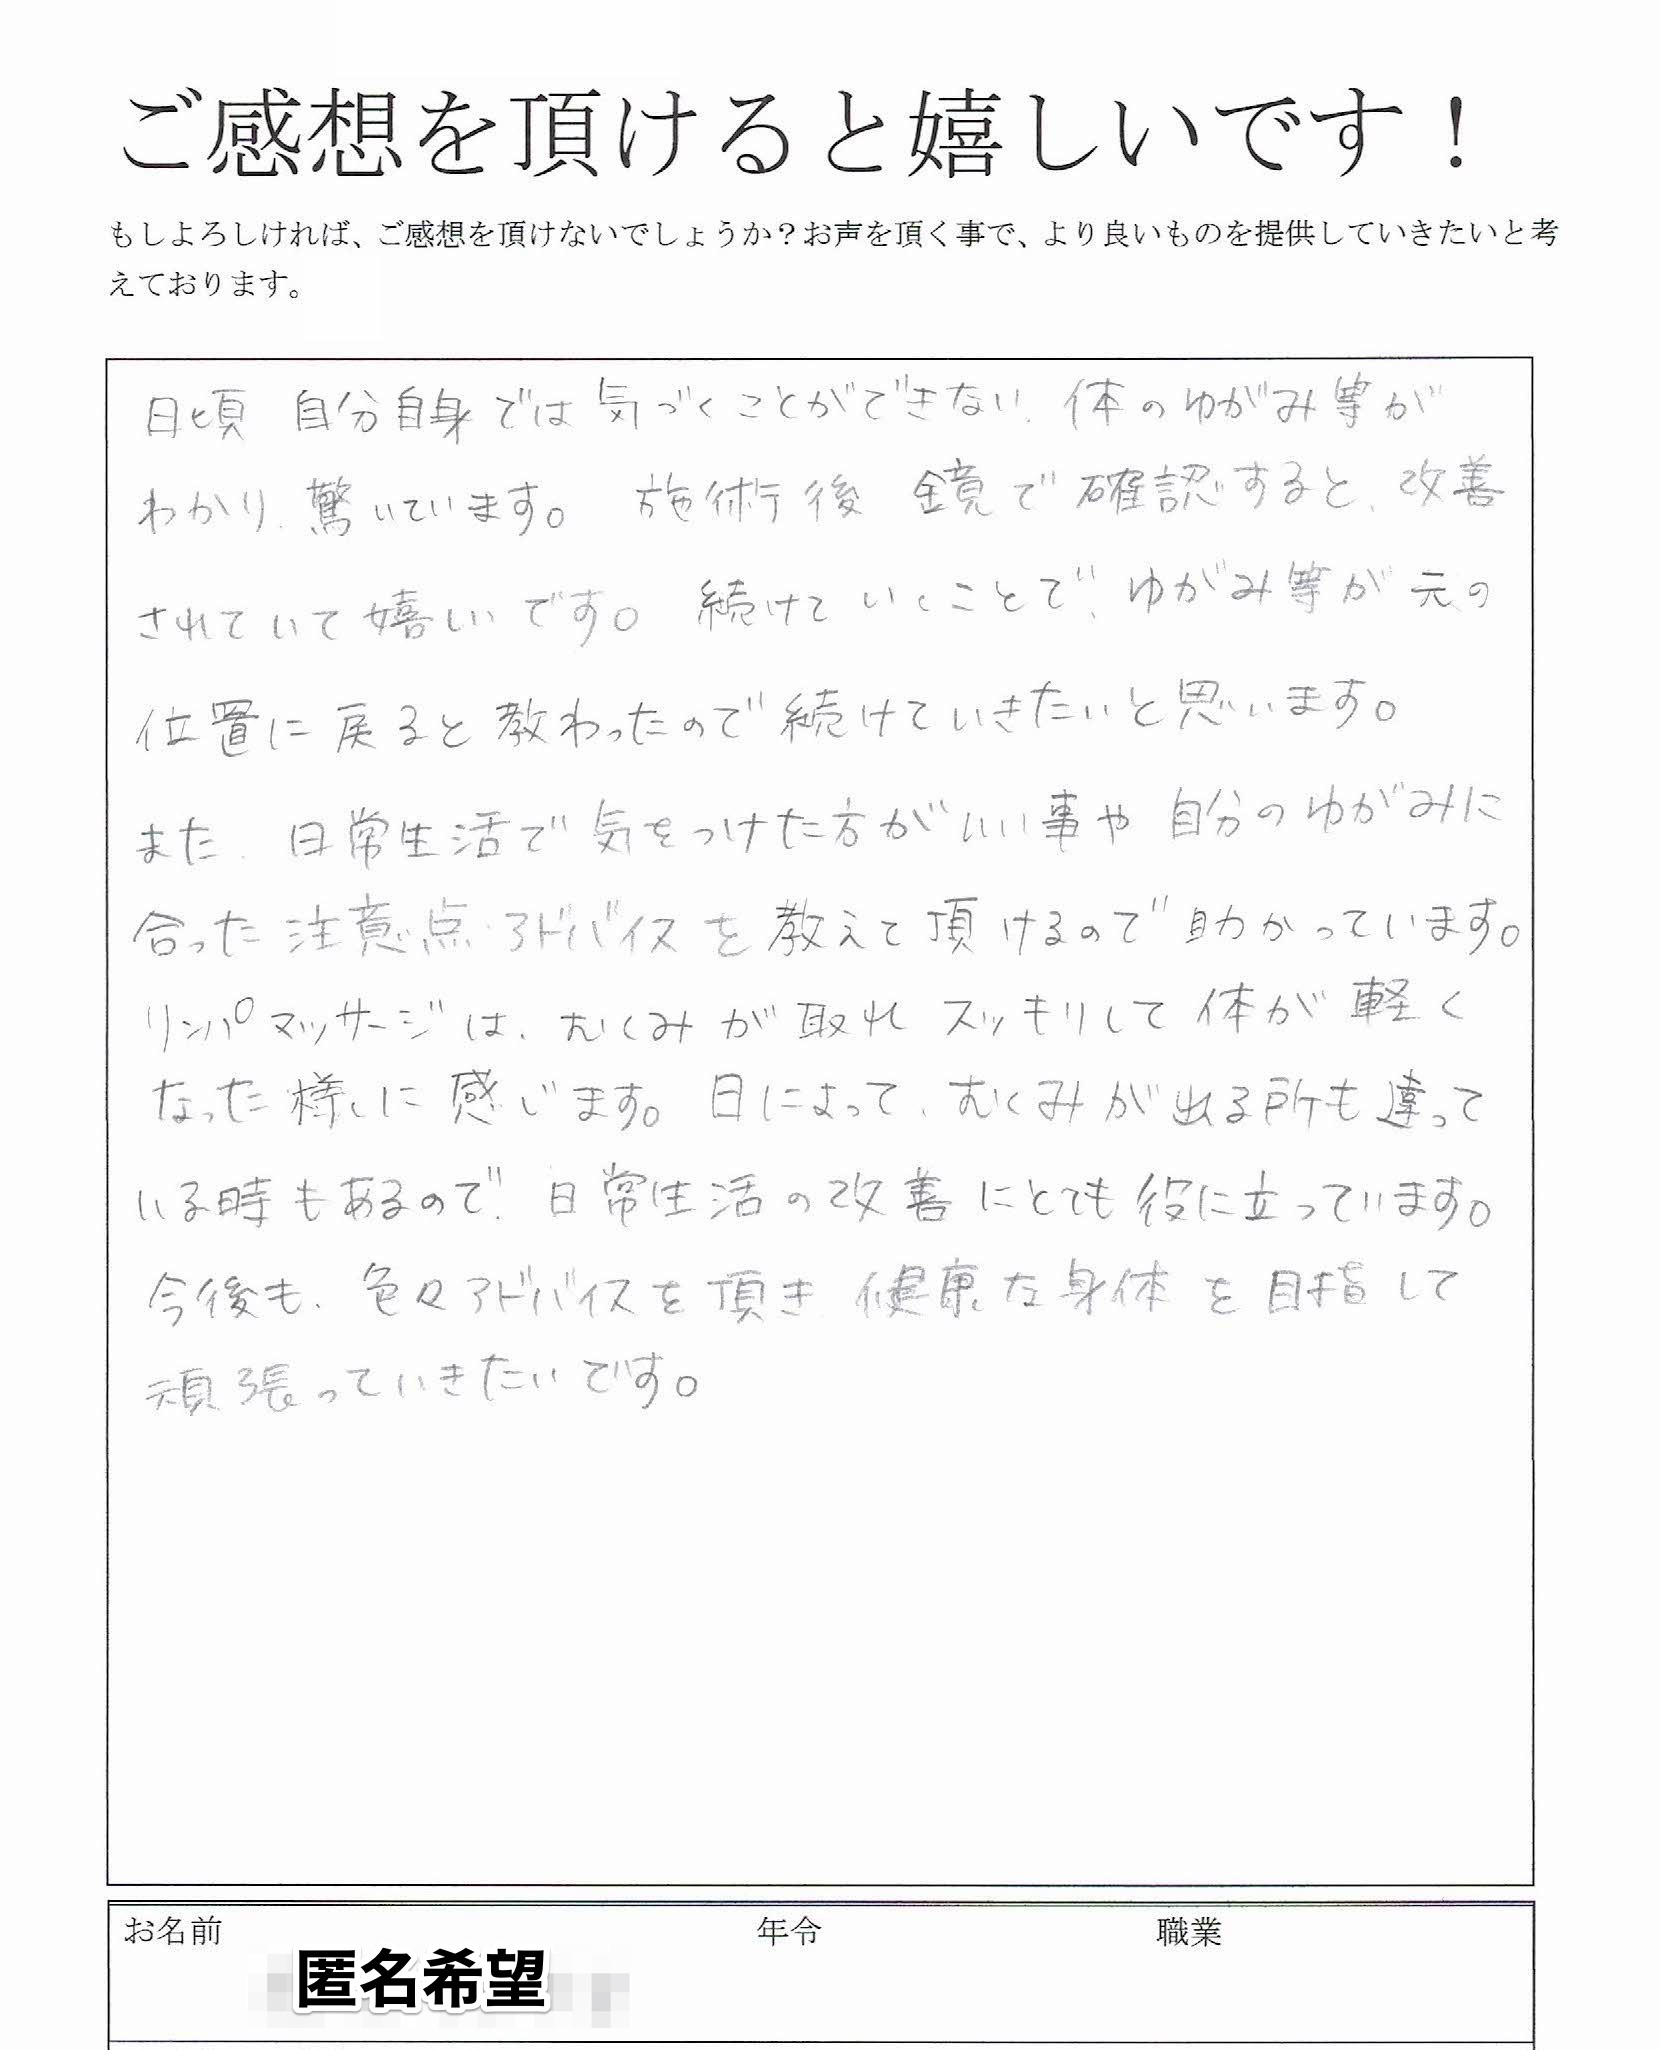 ご感想を頂けると嬉しいです！
もしよろしければ、ご感想を頂けないでしょうか？お声を頂く事で、より良いものを提供していきたいと考
えております。
日頃 自分自身では気づくことができない、体のゆがみ等が
わかり、驚いています。 施術後 鏡で確認すると、改善
されていて嬉しいです。 続けていくことで、ゆがみ等が元の
位置に戻ると教わったので続けていきたいと思います。
また、日常生活で気をつけた方がいい事や自分のゆがみに
合った注意点・アドバイスを教えて頂けるので助かっています。
リンパマッサージは、むくみが取れスッキリして体が軽く
なった様に感じます。日によって、むくみが出る所も違って
いる時もあるので、日常生活の改善にとても役に立っています。
今後も、色々アドバイスを頂き 健康な身体を目指して
頑張っていきたいです。
お名前 年令 職業
匿名希望